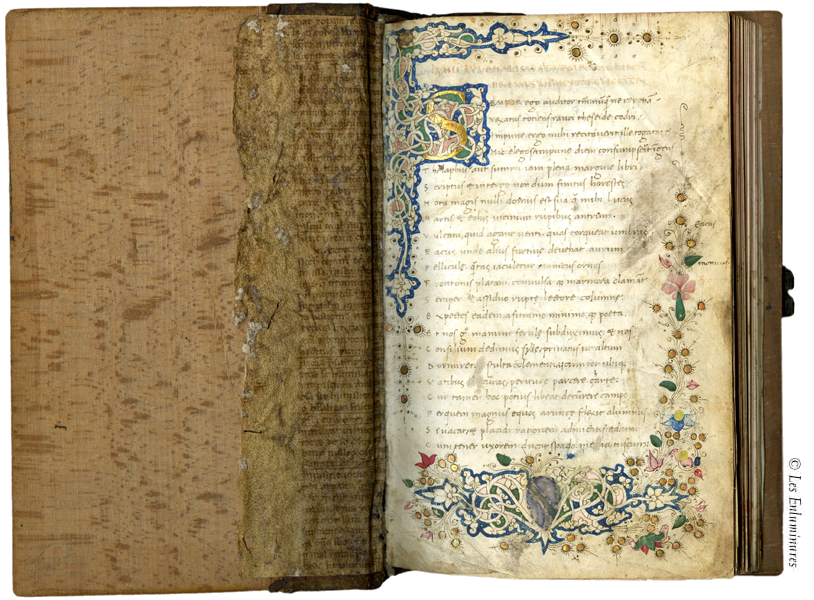 SEMPER ego auditor tantum? ne reponā
vexatus totiens rauci theseide codri
Impune ergo mihi recitaverit ille togatas
Hic elegos impune diem consumpserit ingens
Thelaphus aut summi iam plena margine libri
Scriptus & in tergo nondum finitus horestes
Nota magis nulli domus est sua q̄ mihi lucus
Martis & eoliis vicinum rupibus antrum
Vulcani quid agant venti quas torqueat umbras
Eacus unde alius furtive devehat aurum
Eacus
Pellicule q̄tas iaculetur monicus ornos
monicus
Frontonis platani convulsa q; marmora clamāt
Semper & assiduo rupte lectore columne
Expectes eadem a summo minimo q; poeta
Et nos gͦ manum ferule subduximus & nos
Consilium dedimus sylle privatus ut altum
Dormiret stulta est clementia cum tot ubique
Vatibus occuras periture parcere carte
Cur tamen hoc potius libeat decurere campo
Per quem magnus equos aurunce flexit alumnus
Si vacat ac placidi rationem admittitis edam
Cum tener uxorem ducat spado mevia tuscum
© Les Enluminures